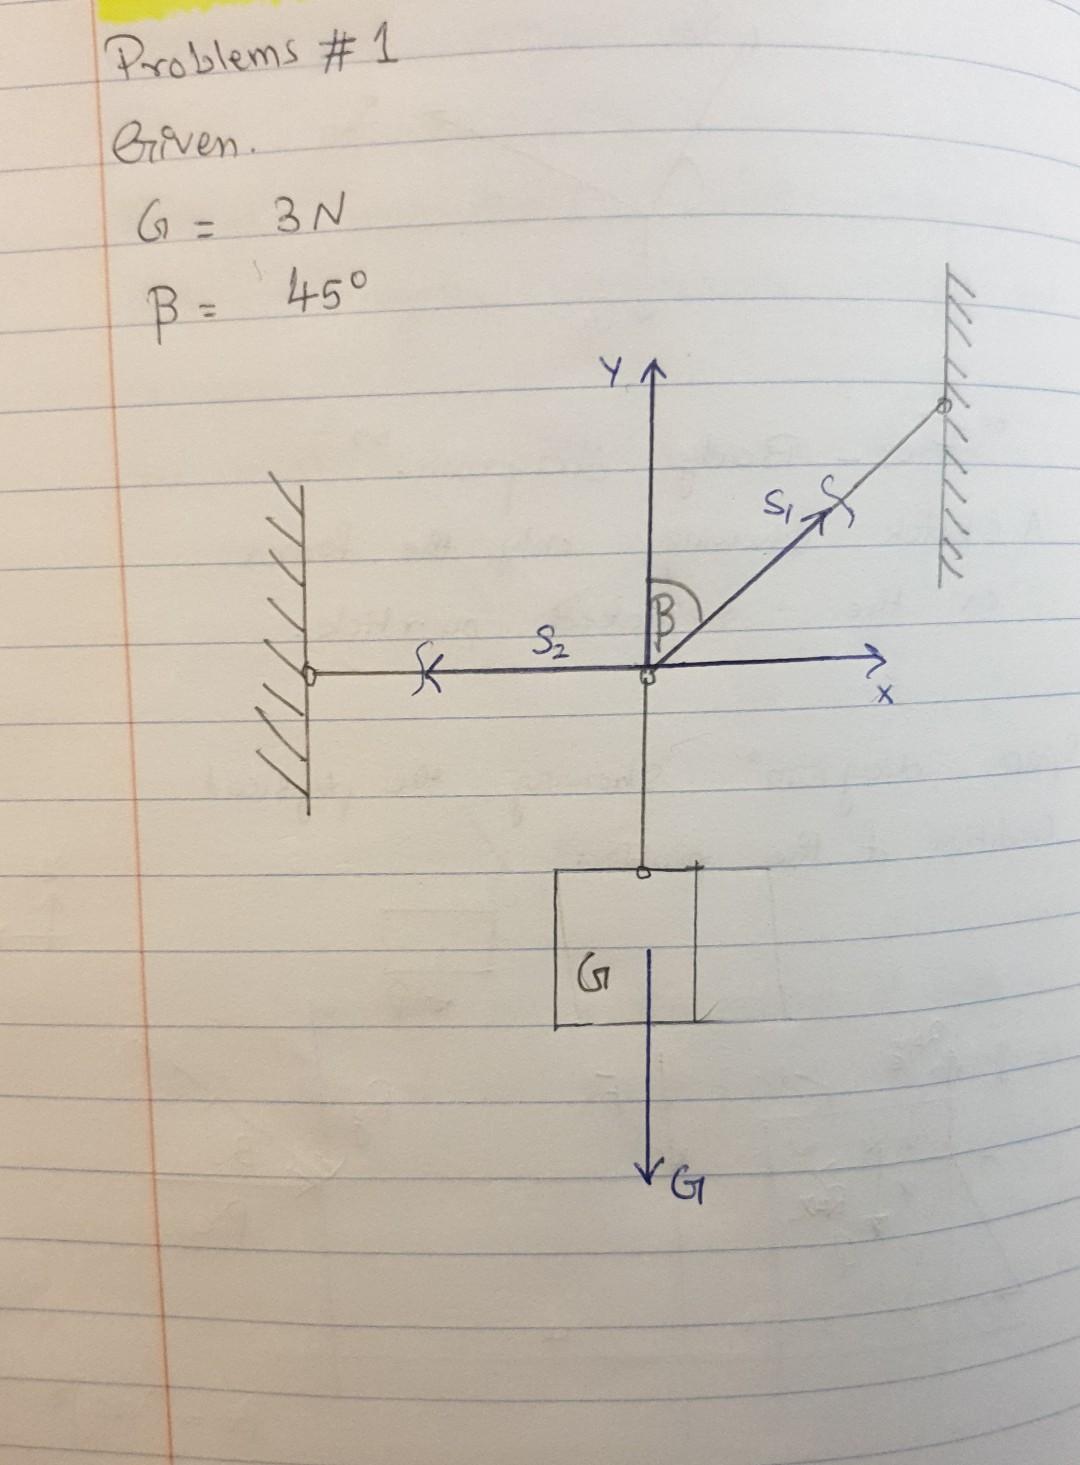 Problems # 1
Given.
G = 3N
β = 45°
Y
S₁
β
S₂
x
G
G